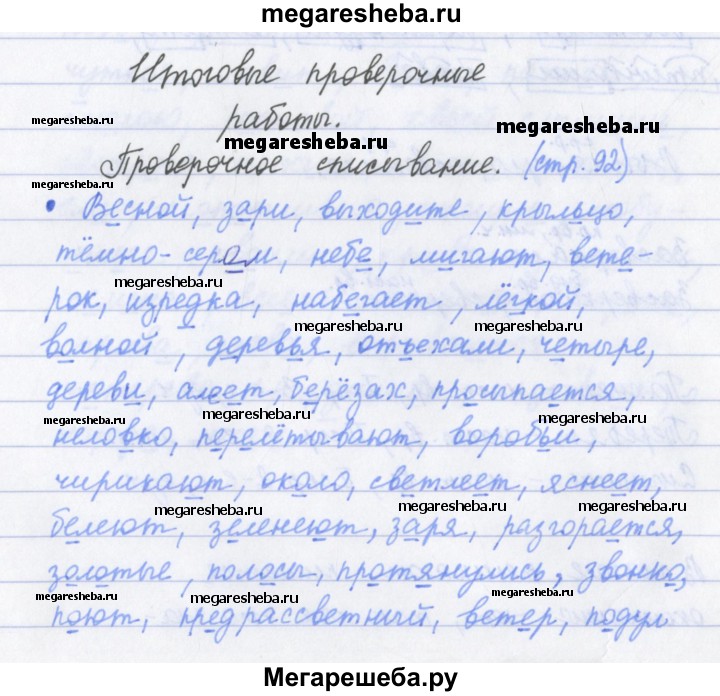 megaresheba.ru
Итоговые проверочные
megaresheba.ru работы. megaresheba.ru
megaresheba.ru
Проверочное списывание. (стр. 92)
• Весной, зари, выходите, крыльцо,
тёмно-сером, небе, мигают, вете-
megaresheba.ru megaresheba.ru
рок, изредка, набегает, лёгкой,
megaresheba.ru megaresheba.ru
волной, деревья, отъехали, четыре,
дереви, алеет, берёзах, просыпается,
megaresheba.ru megaresheba.ru megaresheba.ru
неловко, перелётывают, воробьи,
чирикают, около, светлеет, яснеет,
megaresheba.ru megaresheba.ru megaresheba.ru
белеют, зеленеют, заря, разгорается,
золотые, полосы, протянулись, звонко,
megaresheba.ru megaresheba.ru megaresheba.ru
поют, предрассветный, ветер, подул
Мегарешеба.ру